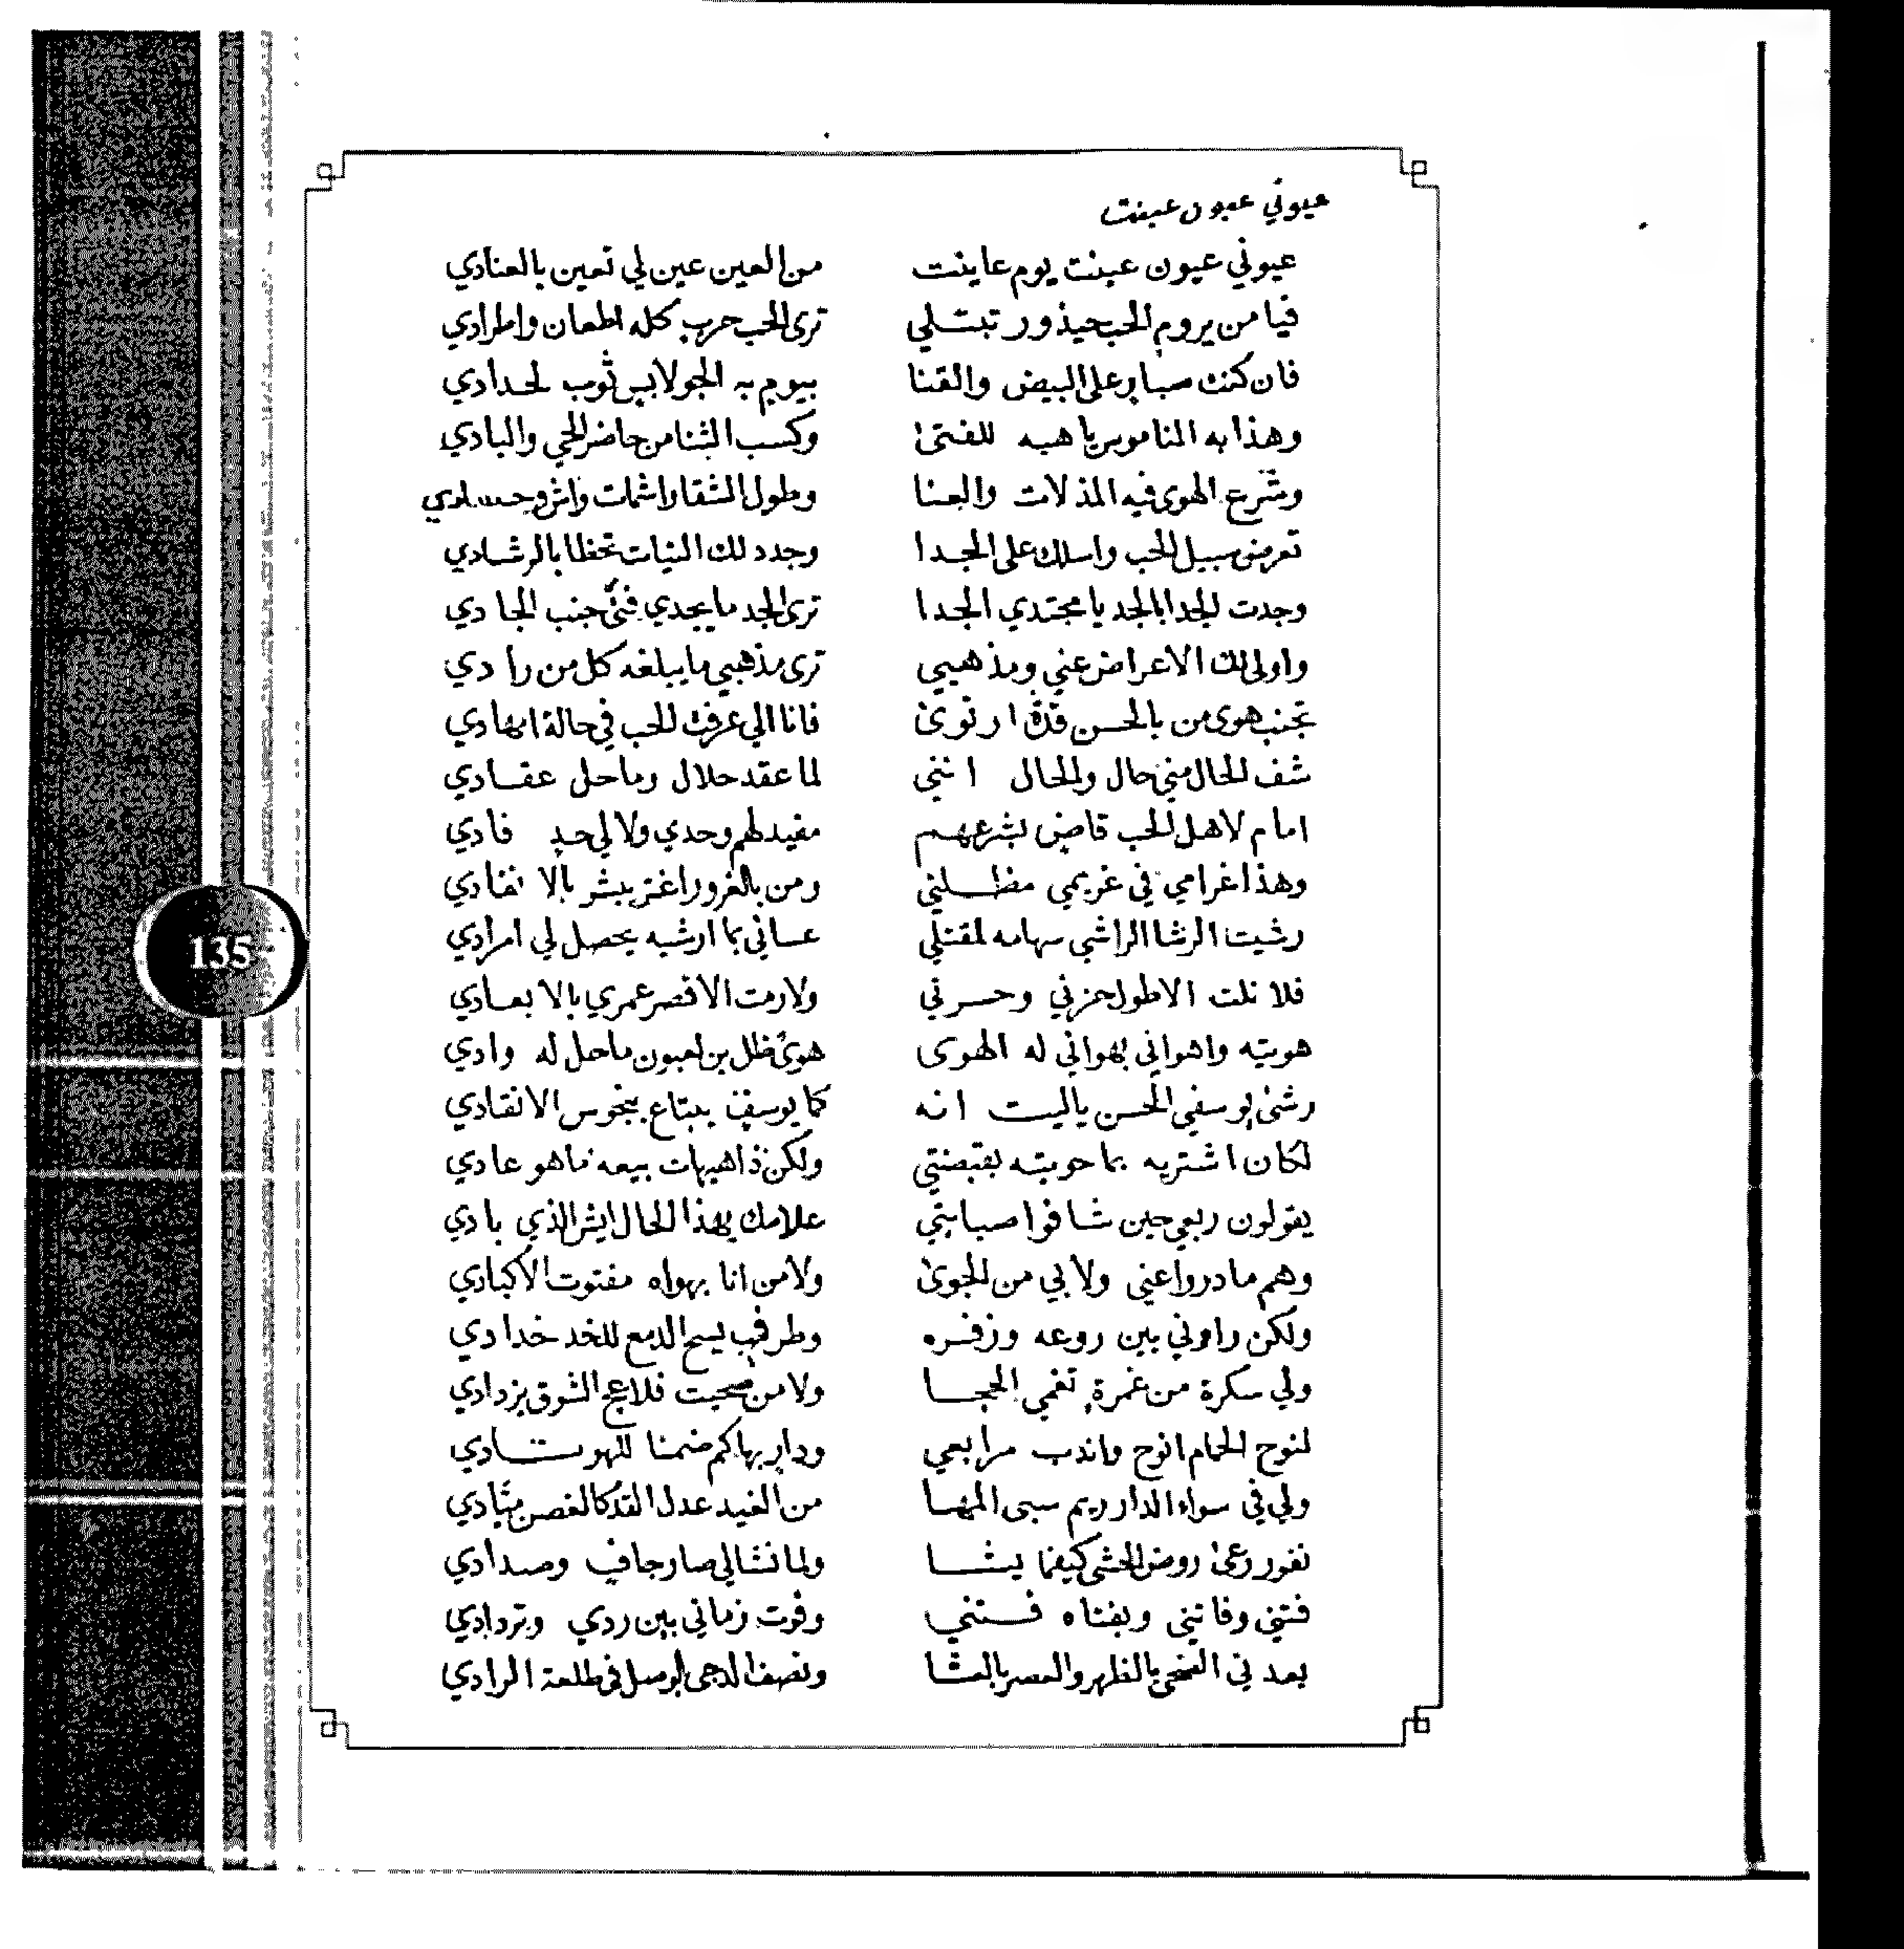 عيوني عيون عينت
عيوني عيون عينت يوم عاينت من العين عين لي تعين بالعنادي
فيا من يروم الحب حيذور تبتلي ترى الحب حرب كله اطعان واطرادي
فان كنت صبار على البيض والقنا بيوم به الجو لابس ثوب لحدادي
وهذا به الناموس يا هيه للفتى وكسب الثنا من حاضر الحي والبادي
وشرع الهوى فيه المذلات والعنا وطول الشقا واشمات واش وحسادي
تعرض سبيل الحب واسلك على الجدا وجدد لك النيات تحظا بالرشادي
وجدت الجدا بالجد يا مجتدي الجدا ترى الجد ما يجدي فتى جنب الجادي
واولى لك الاعراض عني ومذهبي ترى مذهبي ما يبلغه كل من رادي
تجنب هوى من بالحسن قدة ارتوى فانا الي عرفت للحب في حالة ابهادي
شف الحال مني حال ولحال انني لما عقد حلال وما حل عقادي
امام لاهل الحب قاض بشرعهم مفيد لهم وحدي ولا لي حد فادي
وهذا غرامي في غريمي مظلني ومن بالغرور اغتر يبشر بالا نفادي
رشيت الرشا الراشي سهامه لمقتلي عساني بما ارشيه يحصل لي امرادي
فلا نلت الا طول حزني وحسرتي ولا رمت الا قصر عمري بالا بعادي
هويته واهواني بهواني له الهوى هوى ظل بن لعبون ما حل له وادي
رشى يوسفي الحسن ياليت انه كما يوسف يبتاع بنجوس الانقادي
لكان اشتريه بما حويته بقبضتي ولكن ذا هيهات بيعه ما هو عادي
يقولون ربعي حين شافوا صبابتي علامك بهذا الحال ايش الذي بادي
وهم ما دروا عني ولا بي من الجوى ولا من انا بهواه مفتوت الاكبادي
ولكن راوني بين روعه وزفره وطرف يسح الدمع للخد خدادي
ولي سكرة من غمرة تغمي الحجا ولا من صحيت فلاعج الشوق يزدادي
لنوح الحمام انوح واندب مرابعي ودار بها كم ضمنا للهو تادي
ولي في سواء الدار ريم سبى المها من الغيد عدل القد كالغصن ميادي
نفور رعى روض الحشى كيفما يشا ولما نشا لي صار جاف وصدادي
فتني وفاتني وبفتاه فتني وفوت زماني بين ردي وتردادي
يعدني الضحى بالظهر والعصر بالعشا ونصف الدجى لوصل في طلعة الرادي
135